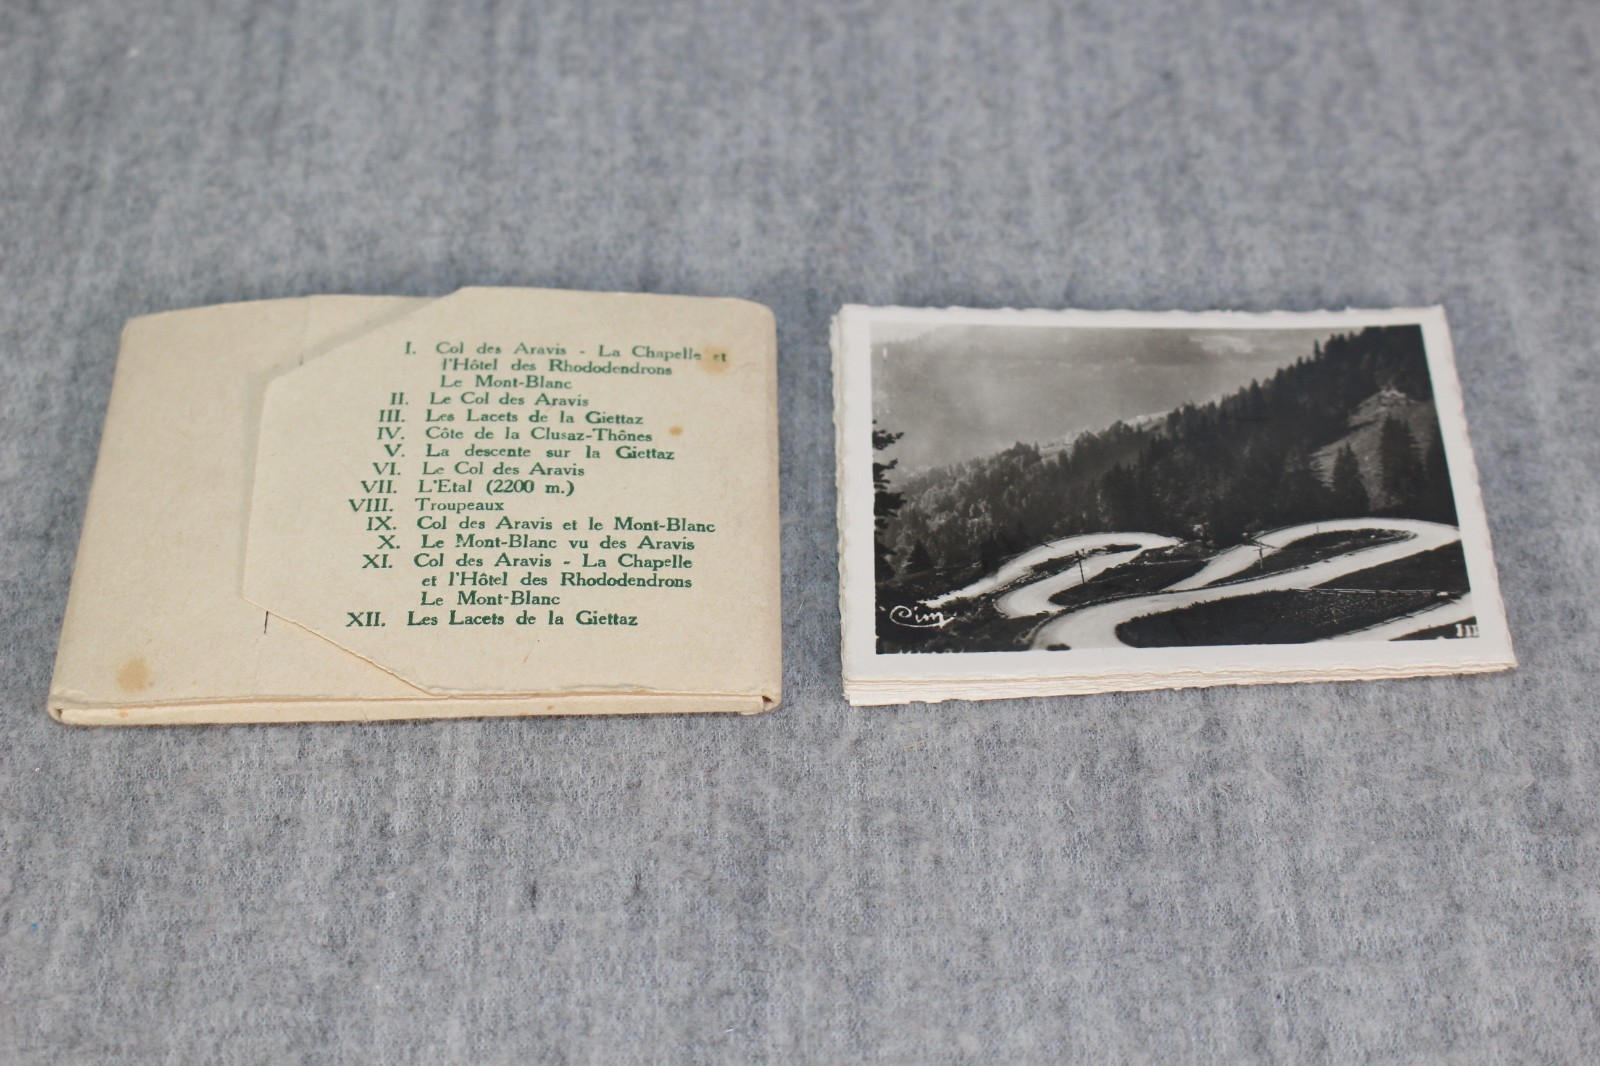 I. Col des Aravis - La Chapelle et
l'Hôtel des Rhododendrons
Le Mont-Blanc
II. Le Col des Aravis
III. Les Lacets de la Giettaz
IV. Côte de la Clusaz-Thônes
V. La descente sur la Giettaz
VI. Le Col des Aravis
VII. L'Etal (2200 m.)
VIII. Troupeaux
IX. Col des Aravis et le Mont-Blanc
X. Le Mont-Blanc vu des Aravis
XI. Col des Aravis - La Chapelle
et l'Hôtel des Rhododendrons
Le Mont-Blanc
XII. Les Lacets de la Giettaz
Cim
III